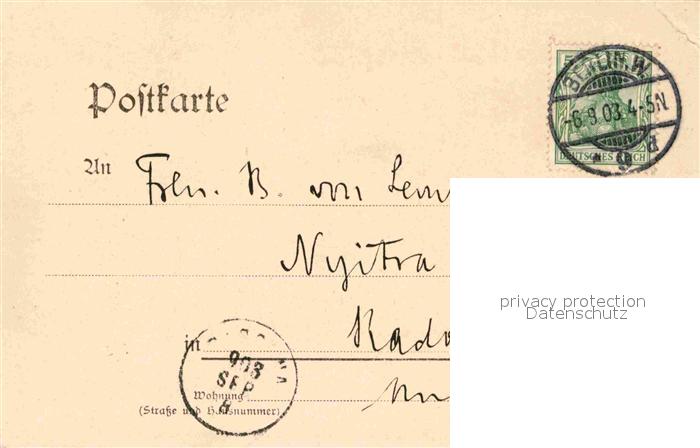 Postkarte
5
BERLIN. W.
-6.9.03. 4-5N.
DEUTSCHES REICH
An Frln. B. von
Nyitra
in
908
SEP
8
Wohnung
(Straße und Hausnummer)
privacy protection
Datenschutz